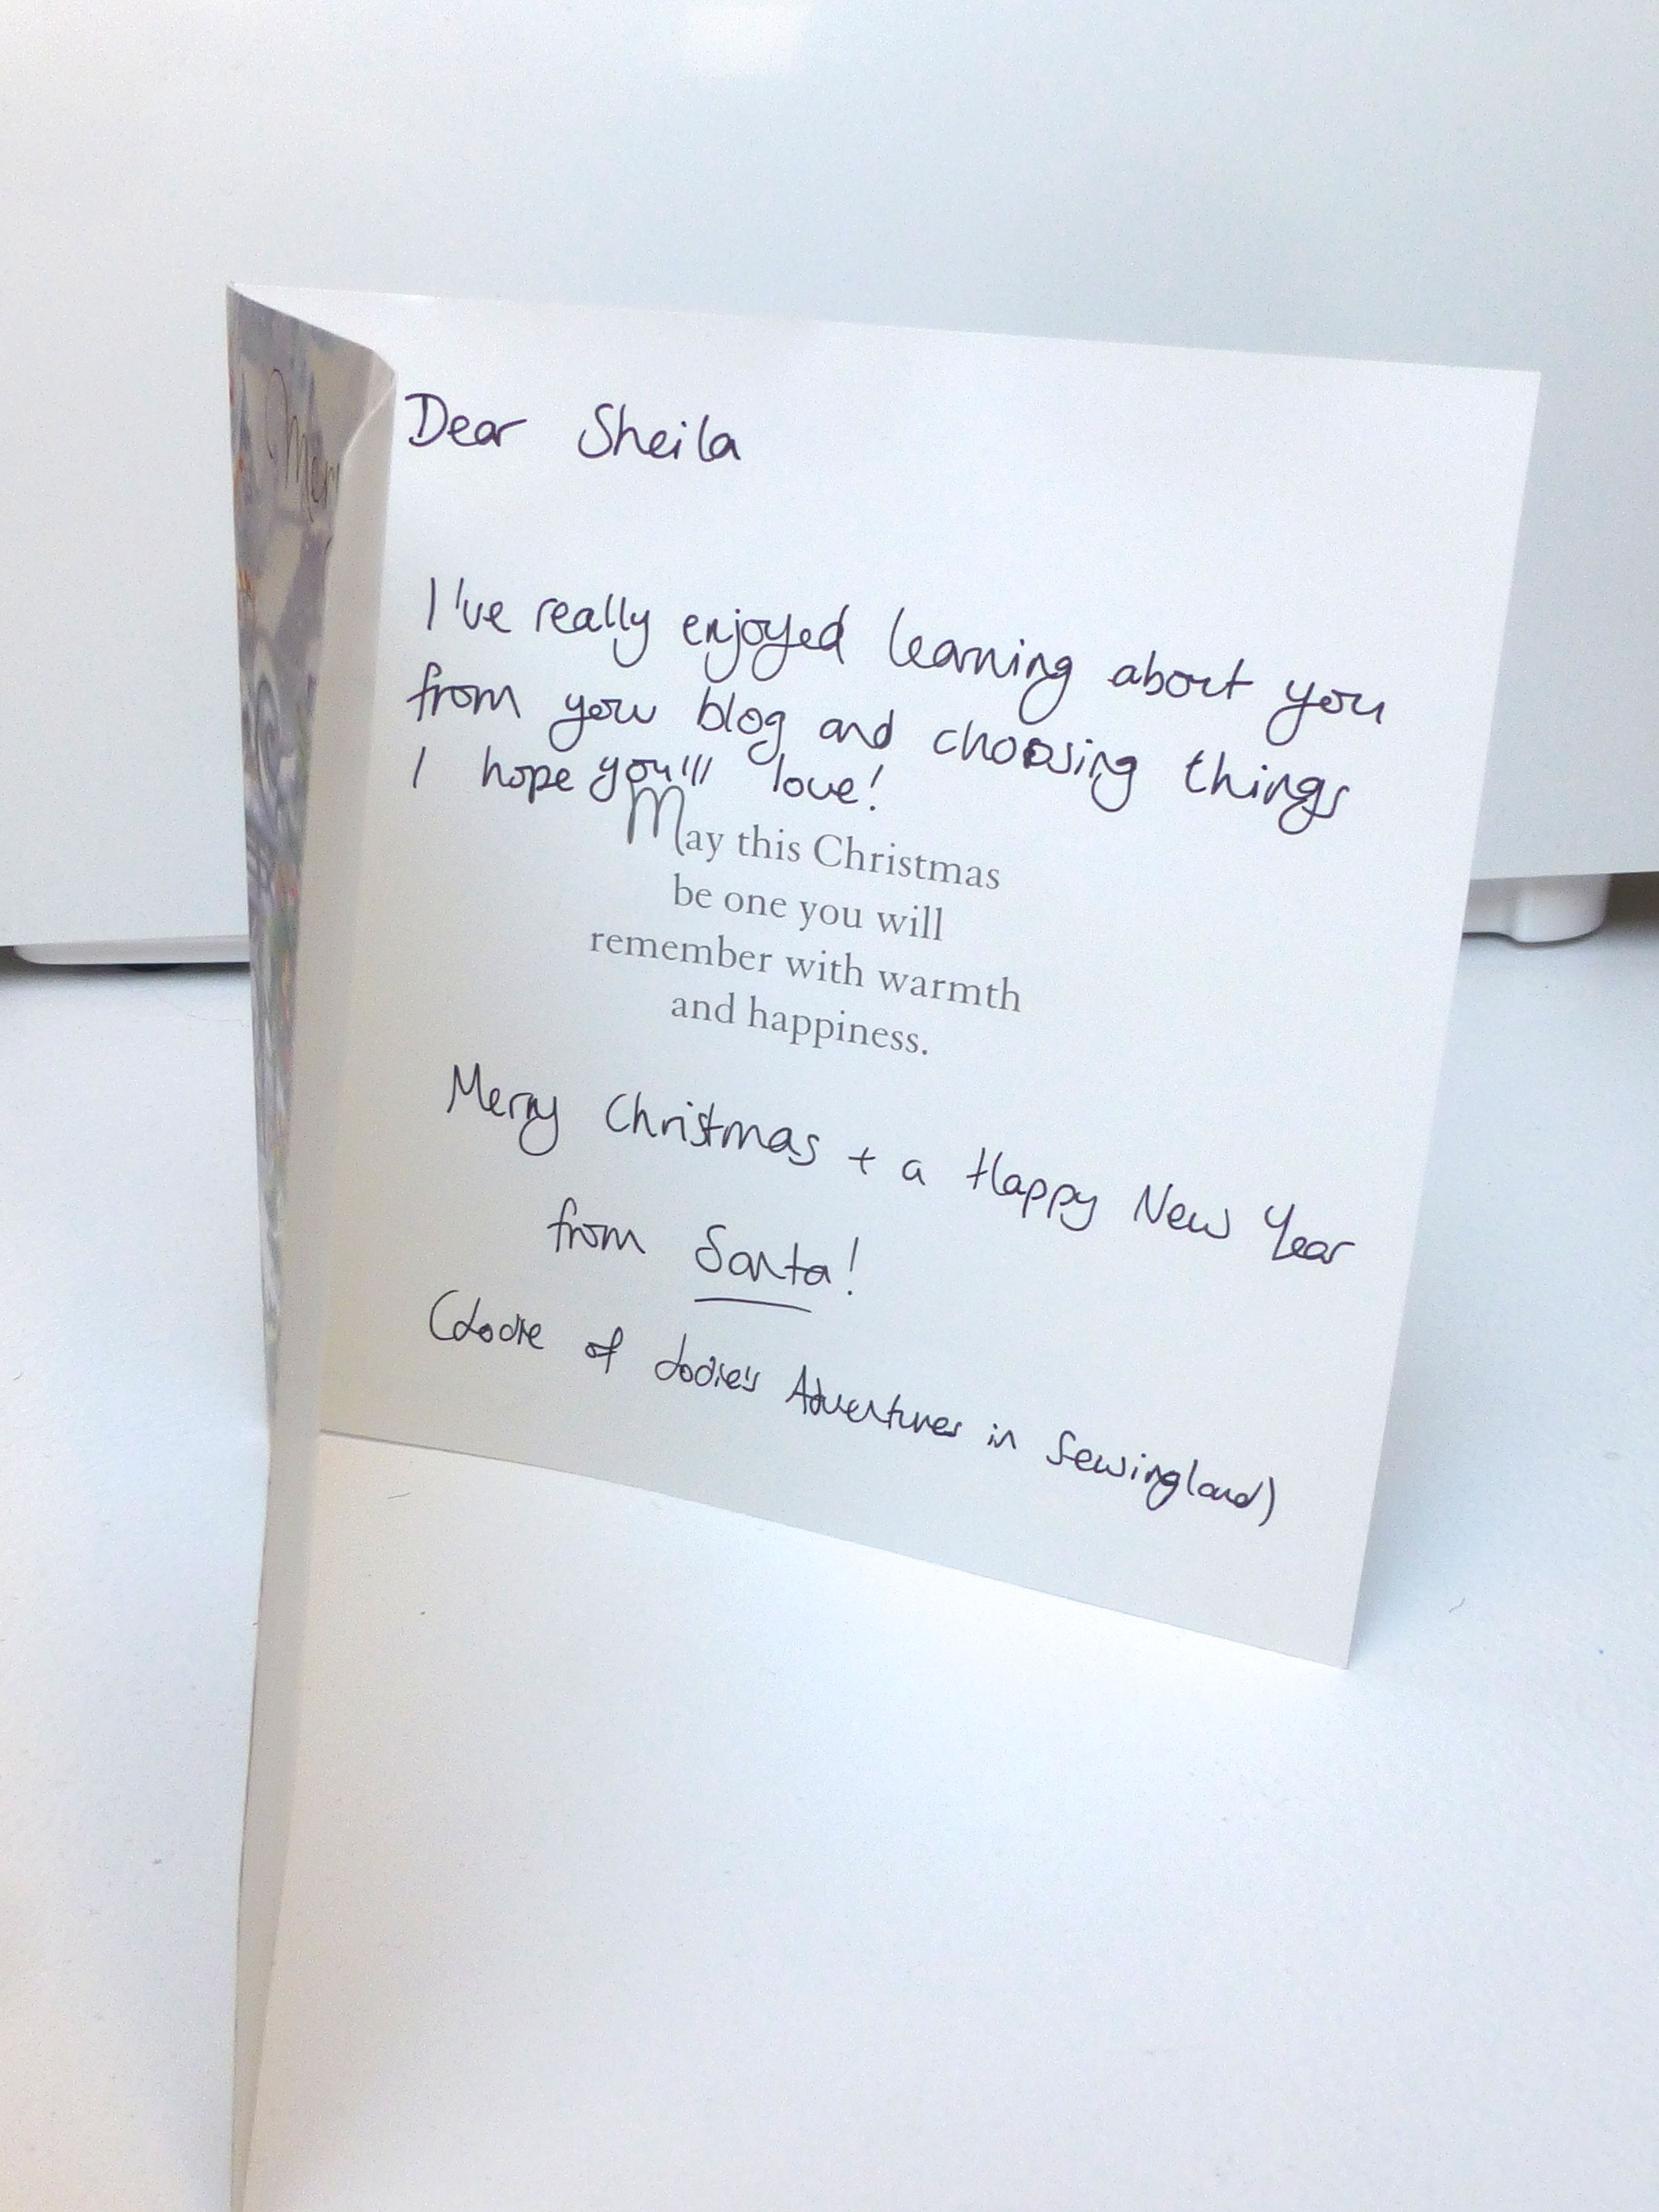 Mer
Dear Sheila
I've really enjoyed learning about you
from your blog and choosing things
I hope you'll love!
May this Christmas
be one you will
remember with warmth
and happiness.
Merry Christmas + a Happy New Year
from Santa!
(Jodie of Jodie's Adventures in Sewingland)